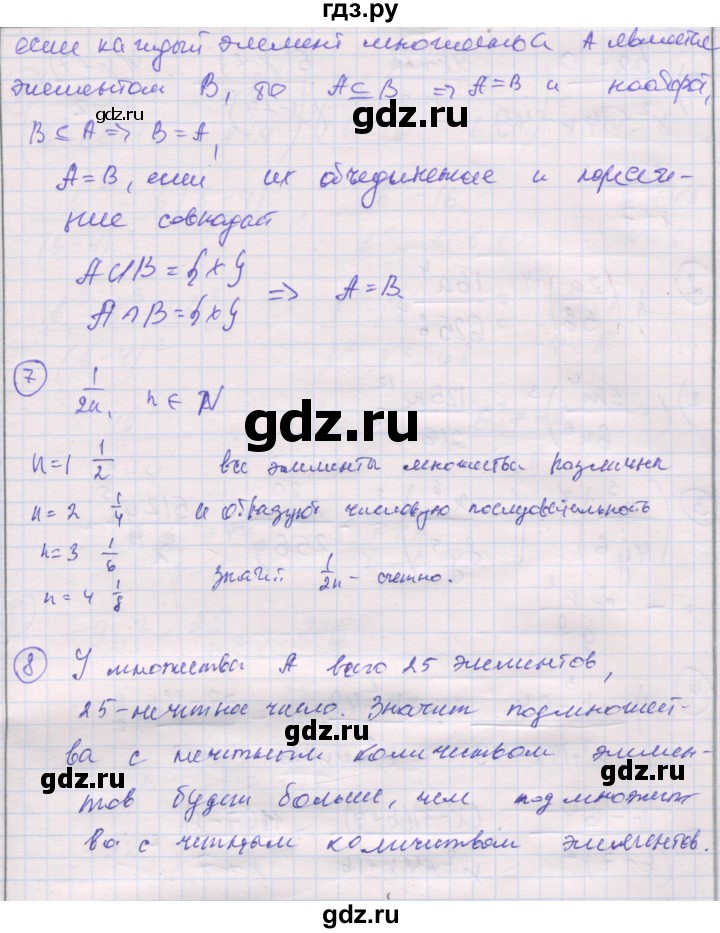 гдз.ру
если каждый элемент множества A является
элементом B, то A⊆B ⇒ A=B и наоборот,
B⊆A ⇒ B=A,
A=B, если их объединение и пересече-
ние совпадает
A∪B={x}
A∩B={x} ⇒ A=B
7 1/2n, n∈N
n=1 1/2 все элементы множества различны
n=2 1/4 и образуют числовую последовательность
n=3 1/6
значит 1/2n - счетно.
n=4 1/8
8 У множества A всего 25 элементов,
25-нечетное число. Значит подмножест-
ва с нечетным количеством элемен-
тов будет больше, чем подмножест
ва с четным количеством элементов.
gdz.ru
gdz.ru
gdz.ru
gdz.ru
gdz.ru
gdz.ru
gdz.ru
gdz.ru